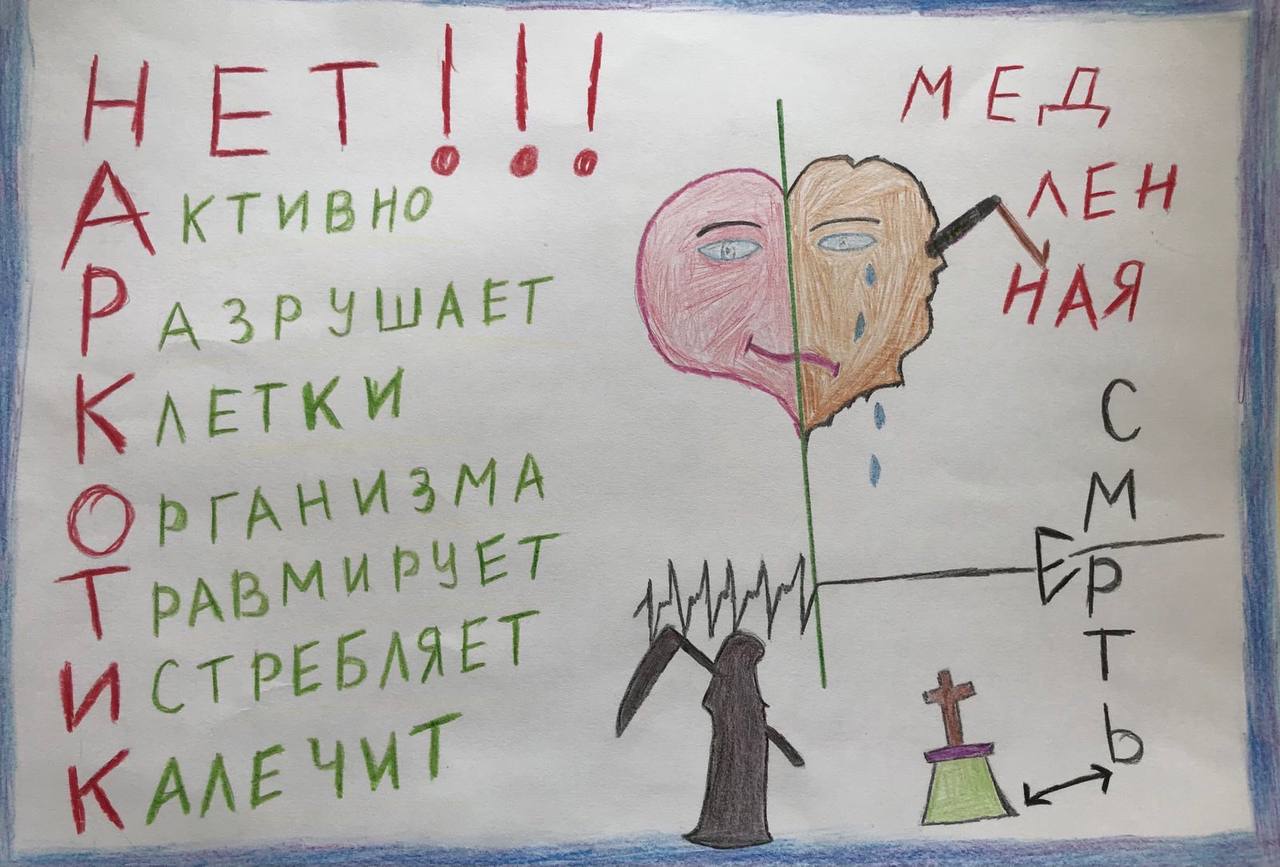 НЕТ!!!
АКТИВНО
РАЗРУШАЕТ
КЛЕТКИ
ОРГАНИЗМА
ТРАВМИРУЕТ
ИСТРЕБЛЯЕТ
КАЛЕЧИТ
МЕД
ЛЕН
НАЯ
С
М
Е
Р
Т
Ь